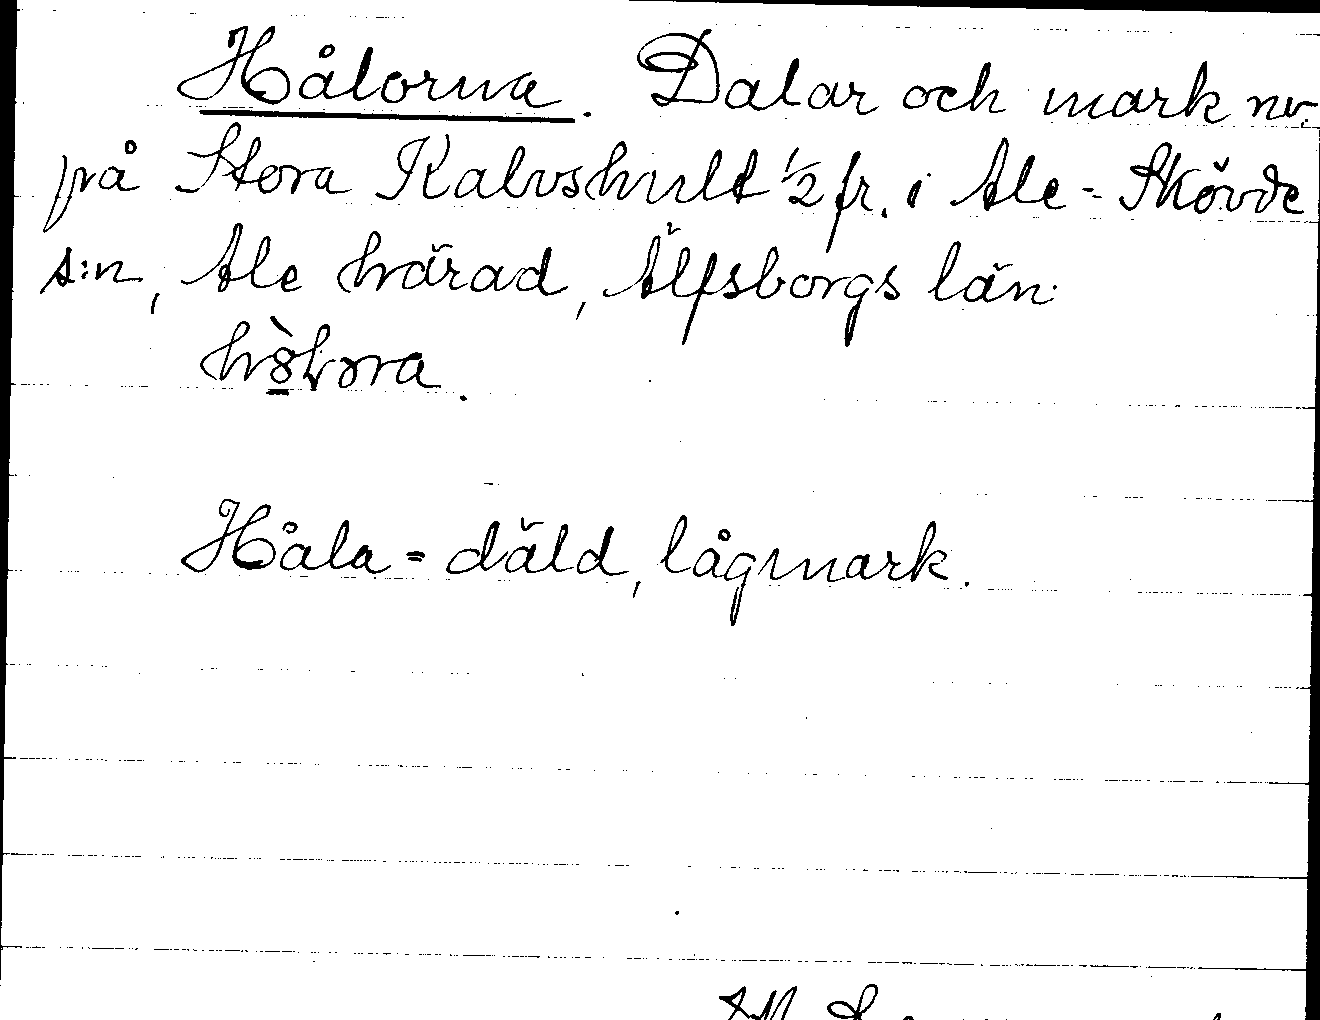 Hålorna. Dalar och mark nv.
på Stora Kalvshult 1/2 fr. i Ale-Skövde
s:n, Ale härad, Älfsborgs län.
Håla = däld, lågmark.